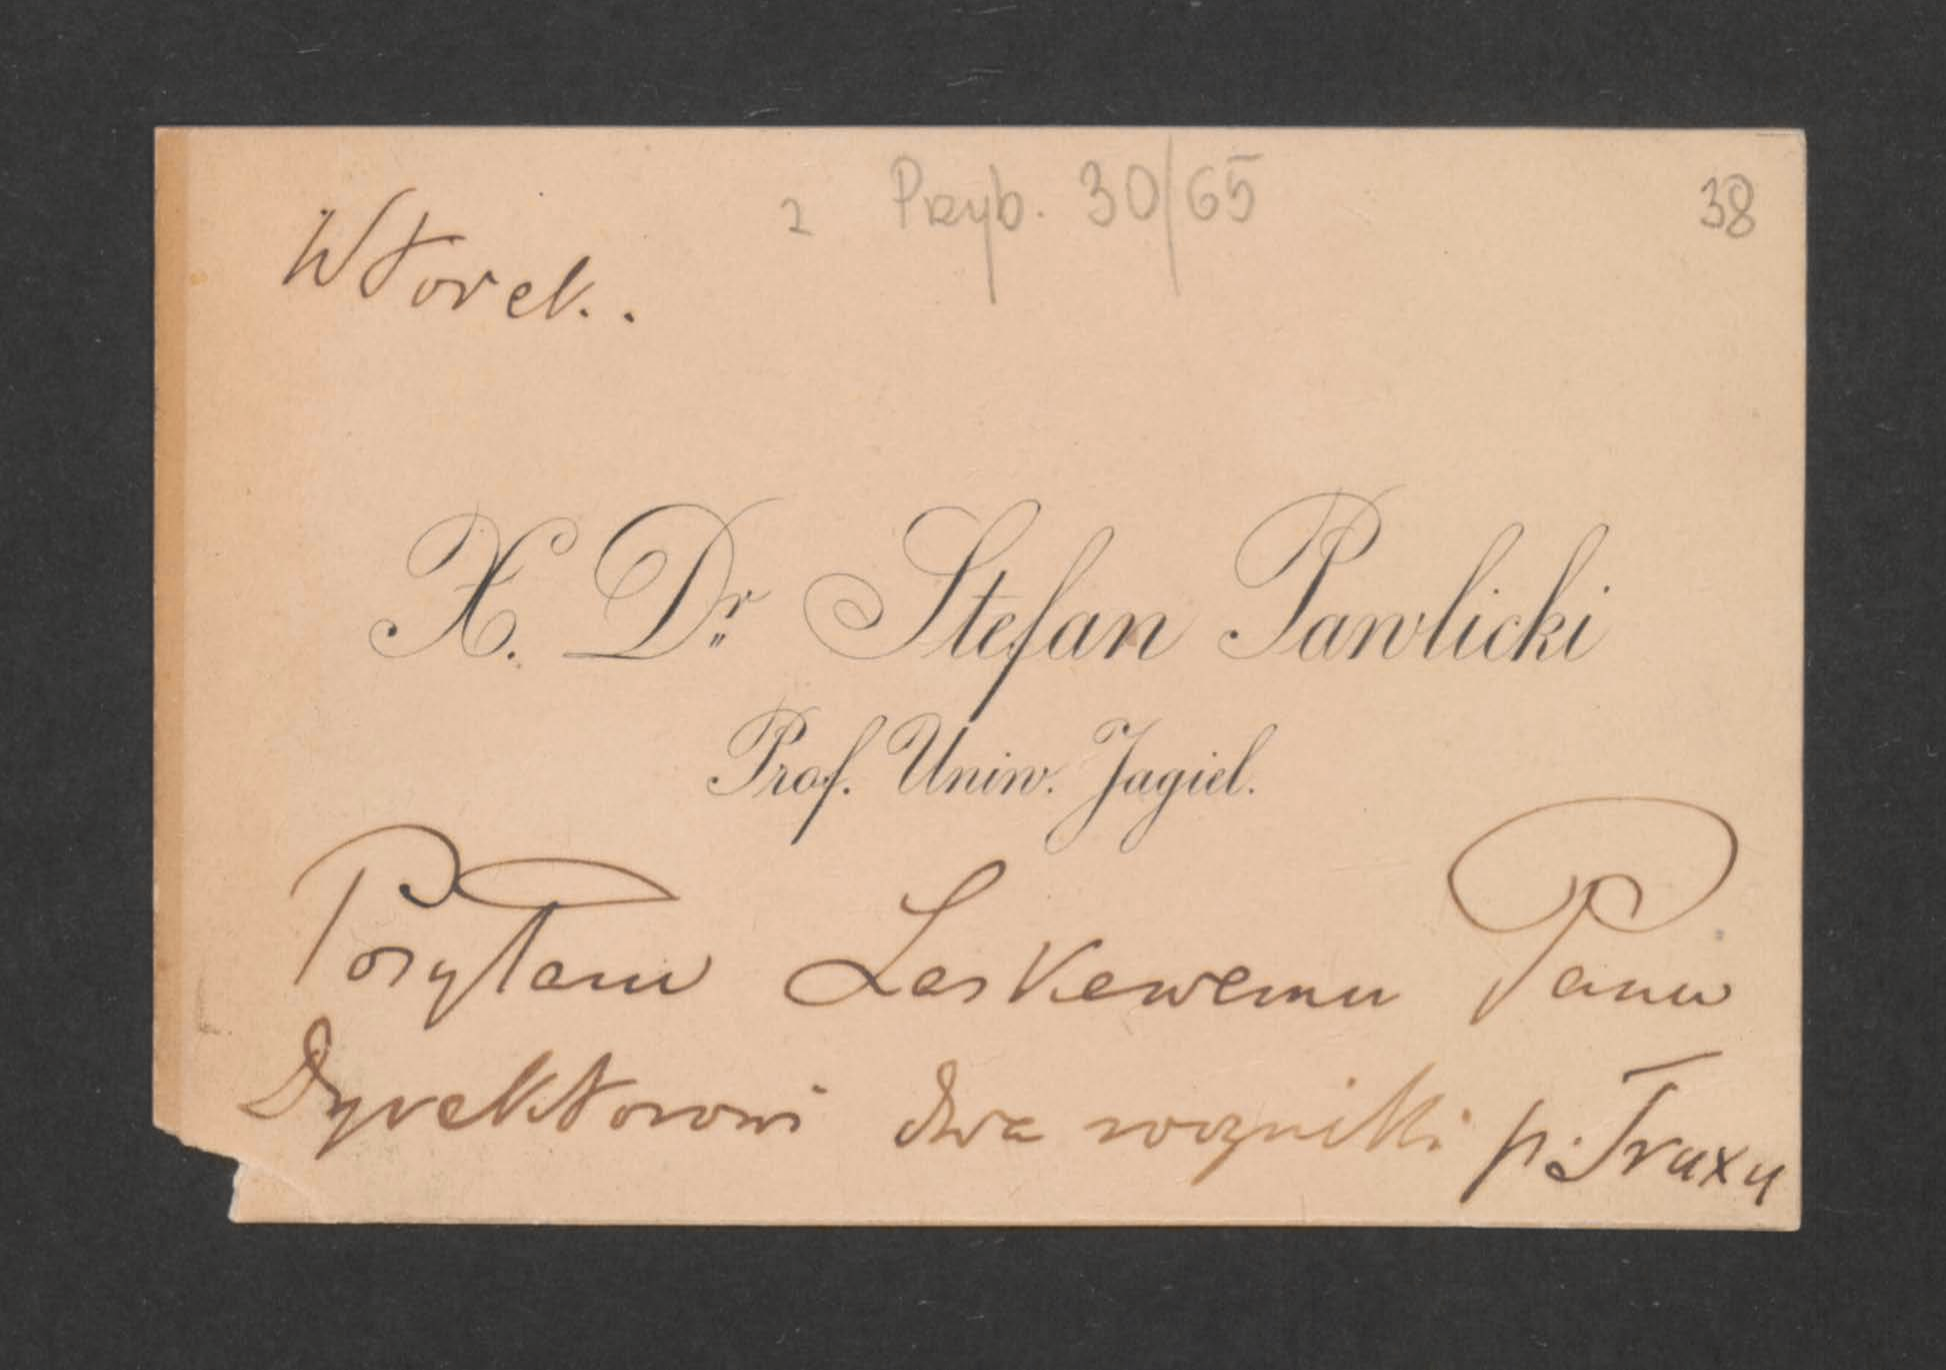 z Przyb. 30/65
38
Wtorek.
X. Dr Stefan Pawlicki
Prof. Uniw. Jagiel.
Posyłam Łaskawemu Panu
Dyrektorowi dwa roczniki p. Fraxu